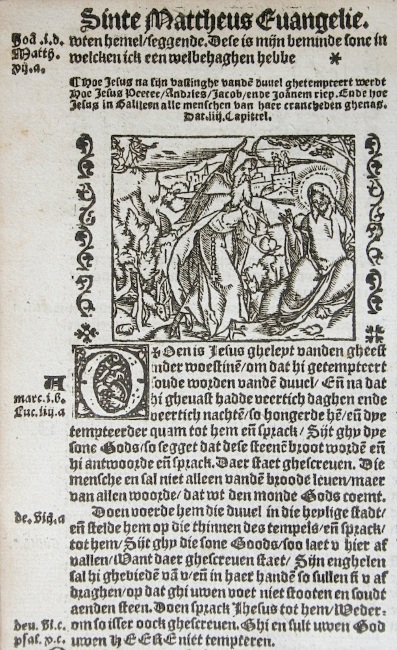 Sinte Mattheus Euangelie.
Joā .i.d.
Matth.
xvij.a.
wten hemel/seggende. Dese is mijn beminde sone in
welcken ick een welbehaghen hebbe *
Hoe Jesus na sijn vastinghe vandē duuel ghetempteert werdt
Hoe Jesus Peeter/Andries/Jacob/ende Joānem riep. Ende hoe
Jesus in Galileen alle menschen van haer cranckheden ghenas.
Dat .iiij. Capittel.
A
marc.i.b.
Luc.iiij.a
DOen is Jesus gheleyt vanden gheest
inder woestinē/om dat hi getempteert
soude worden vandē duuel/ Eñ na dat
hi gheuast hadde veertich daghen ende
veertich nachtē/so hongerde hē/eñ dye
tempteerder quam tot hem eñ sprack/ Sijt ghy dye
sone Gods/so segget dat dese steenē broot wordē eñ
hi antwoorde eñ sprack. Daer staet ghescreuen. Die
mensche en sal niet alleen vandē broode leuen/maer
van allen woorde/dat wt den monde Gods coemt.
de. viij.a
Doen voerde hem die duuel in die heylige stadt/
eñ stelde hem op die thinnen des tempels/eñ sprack/
tot hem/ Sijt ghy die sone Goods/soo laet v hier af
vallen/Want daer ghescreuen staet/ Sijn enghelen
sal hi ghebiedē vā v/eñ in haer handē so sullen si v af
draghen/op dat ghi uwen voet niet stooten en soudt
aenden steen. Doen sprack Jhesus tot hem/Weder-
deu. vi.c.
psal. xc.
om so isser oock ghescreuen. Ghi en sult uwen God
uwen HEERE niet tempteren.